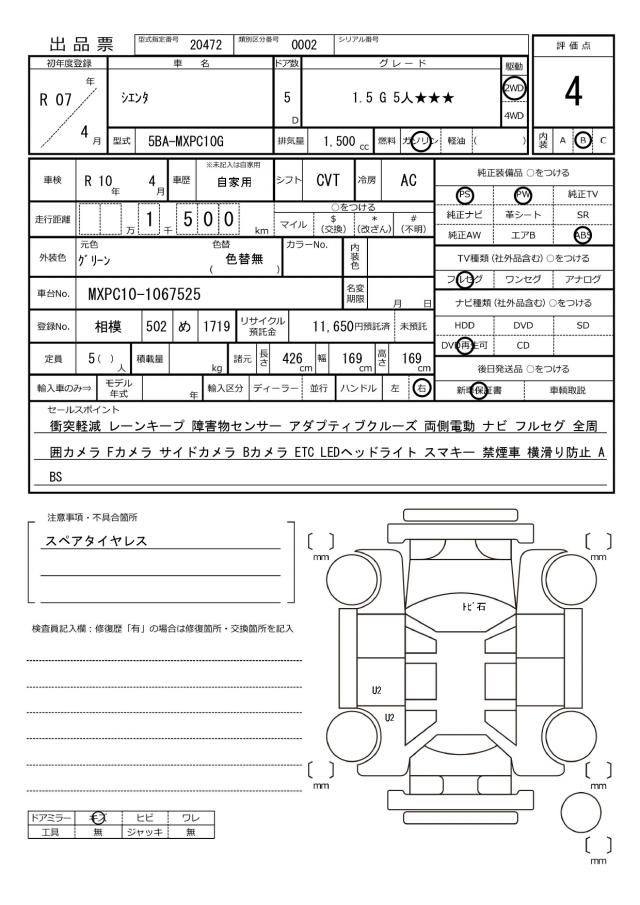 出品票 型式指定番号 20472 類別区分番号 0002 シリアル番号
評価点
4
初年度登録 車名 ドア数 グレード 駆動
R 07 年 4 月 シエンタ 5 D 1.5 G 5人★★★ 2WD 4WD
型式 5BA-MXPC10G 排気量 1,500 cc 燃料 ガソリン 軽油 ( ) 内装 A B C
車検 R 10 年 4 月 車歴 ※未記入は自家用 自家用 シフト CVT 冷房 AC
走行距離 万 1 千 5 0 0 km ○をつける マイル $(交換) *(改ざん) #(不明)
外装色 元色 グリーン 色替 ( 色替無 ) カラーNo. 内装色
車台No. MXPC10-1067525 名変期限 月 日
登録No. 相模 502 め 1719 リサイクル預託金 11,650円預託済 未預託
定員 5 ( ) 人 積載量 kg 諸元 長さ 426 cm 幅 169 cm 高さ 169 cm
輸入車のみ⇒ モデル年式 年 輸入区分 ディーラー 並行 ハンドル 左 右
純正装備品 ○をつける
PS PW 純正TV
純正ナビ 革シート SR
純正AW エアB ABS
TV種類 (社外品含む) ○をつける
フルセグ ワンセグ アナログ
ナビ種類 (社外品含む) ○をつける
HDD DVD SD
DVD再生可 CD
後日発送品 ○をつける
新車保証書 車輌取説
セールスポイント
衝突軽減 レーンキープ 障害物センサー アダプティブクルーズ 両側電動 ナビ フルセグ 全周
囲カメラ Fカメラ サイドカメラ Bカメラ ETC LEDヘッドライト スマキー 禁煙車 横滑り防止 A
BS
注意事項・不具合箇所
スペアタイヤレス
検査員記入欄：修復歴「有」の場合は修復箇所・交換箇所を記入
〔 〕 mm
〔 〕 mm
トビ石
U2
U2
〔 〕 mm
〔 〕 mm
〔 〕 mm
ドアミラー キズ ヒビ ワレ
工具 無 ジャッキ 無